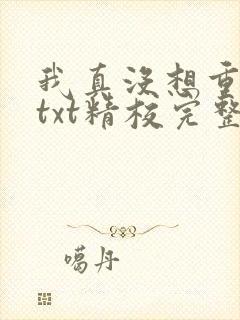 我真没想重
txt精校完整
噶丹